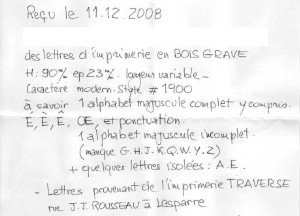 Reçu le 11.12.2008
des lettres d'imprimerie en BOIS GRAVE
H: 90% ep 23% largeur variable -
Caractère modern-style # 1900
à savoir 1 alphabet majuscule complet y compris
É, È, Ê, Œ, et ponctuation.
1 alphabet majuscule incomplet.
(manque G.H.J.K.Q.W.Y.Z)
+ quelques lettres isolées: A.E.
- Lettres provenant de l'imprimerie TRAVERSE
rue J.J. ROUSSEAU à Lesparre